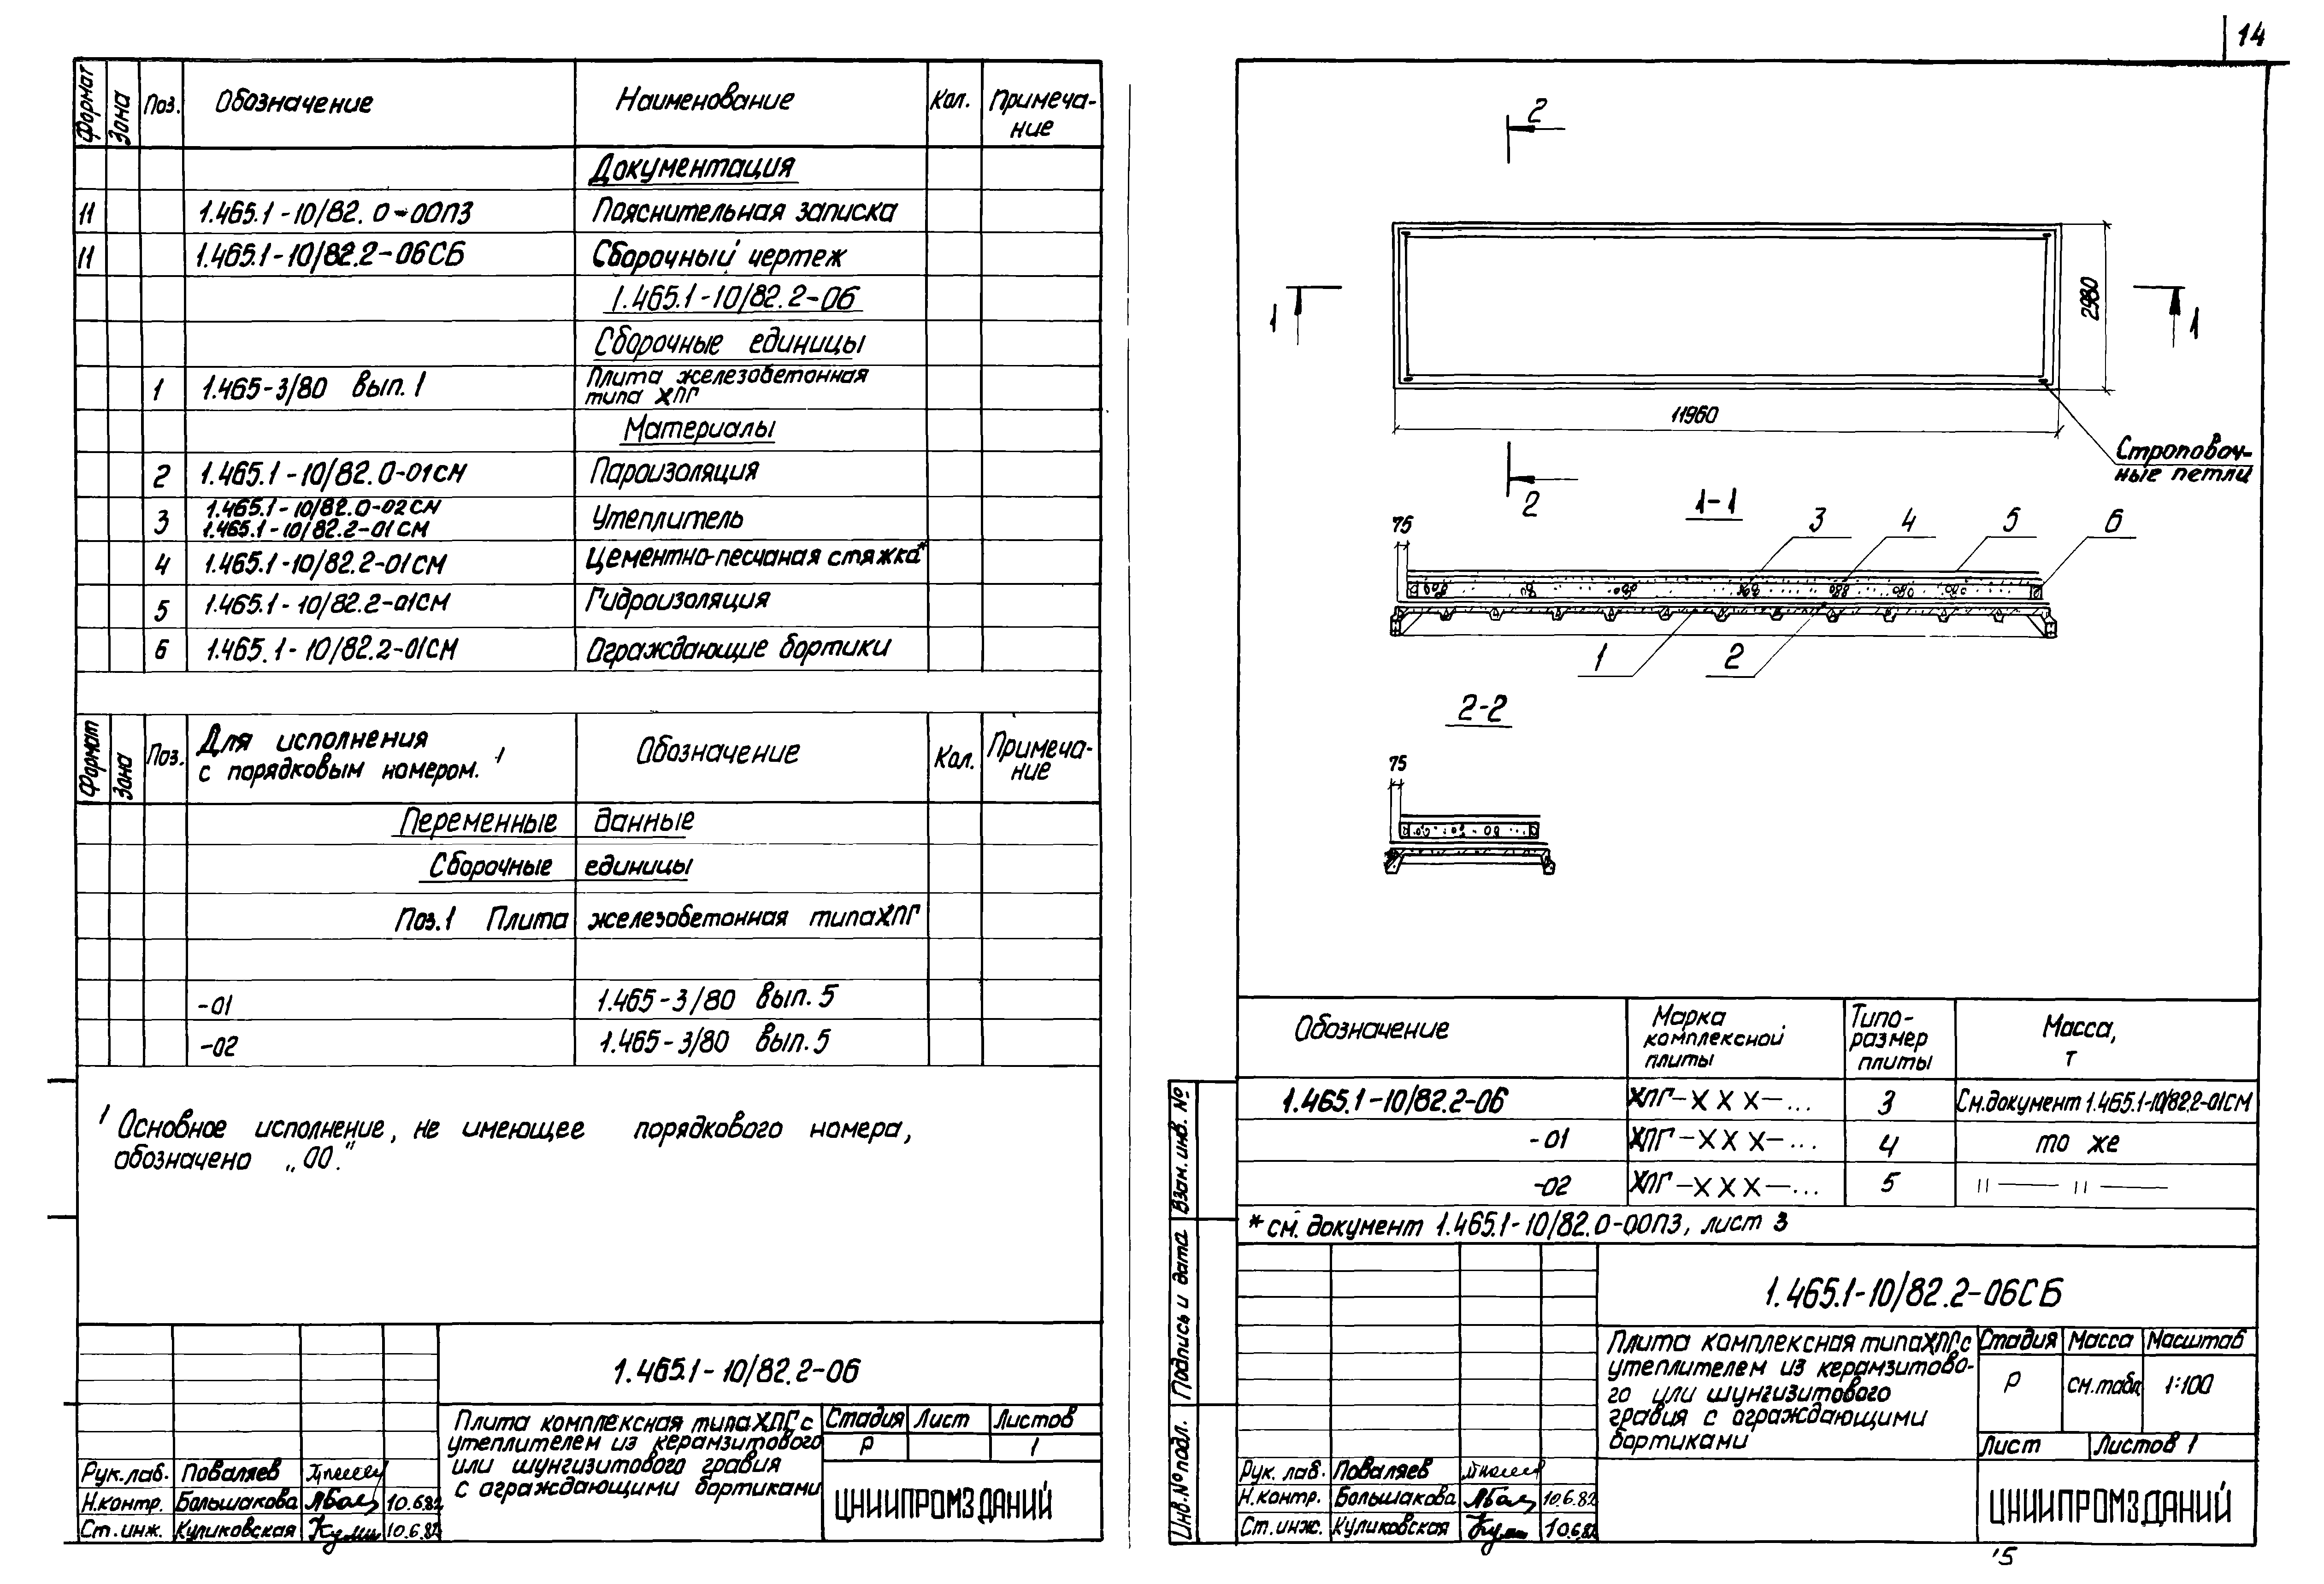 14
Формат
Зона
Поз.
Обозначение
Наименование
Кол.
Примеча-
ние
Документация
11
1.465.1-10/82.0-00ПЗ
Пояснительная записка
11
1.465.1-10/82.2-06СБ
Сборочный чертеж
1.465.1-10/82.2-06
Сборочные единицы
1
1.465-3/80 вып.1
Плита железобетонная
типа ХПГ
Материалы
2
1.465.1-10/82.0-01СМ
Пароизоляция
3
1.465.1-10/82.0-02СМ
1.465.1-10/82.2-01СМ
Утеплитель
4
1.465.1-10/82.2-01СМ
Цементно-песчаная стяжка*
5
1.465.1-10/82.2-01СМ
Гидроизоляция
6
1.465.1-10/82.2-01СМ
Ограждающие бортики
Формат
Зона
Поз.
Для исполнения
с порядковым номером. 1
Обозначение
Кол.
Примеча-
ние
Переменные данные
Сборочные единицы
Поз.1 Плита железобетонная типа ХПГ
-01
1.465-3/80 вып.5
-02
1.465-3/80 вып.5
1 Основное исполнение, не имеющее порядкового номера,
обозначено „00."
1.465.1-10/82.2-06
Плита комплексная типа ХПГ с
утеплителем из керамзитового
или шунгизитового гравия
с ограждающими бортиками
Стадия
Лист
Листов
Р
1
ЦНИИПРОМЗДАНИЙ
Рук.лаб.
Поваляев
Н.контр.
Большакова
10.6.82
Ст.инж.
Куликовская
10.6.82
2
1
1
2980
11960
Строповоч-
ные петли
2
1-1
75
3
4
5
6
1
2
2-2
75
Обозначение
Марка
комплексной
плиты
Типо-
размер
плиты
Масса,
т
1.465.1-10/82.2-06
ХПГ-ХХХ-...
3
См.документ 1.465.1-10/82.2-01СМ
-01
ХПГ-ХХХ-...
4
то же
-02
ХПГ-ХХХ-...
5
" — " —
* см. документ 1.465.1-10/82.0-00ПЗ, лист 3
Взам. инв. №
Подпись и дата
Инв.№подл.
1.465.1-10/82.2-06СБ
Плита комплексная типа ХПГ с
утеплителем из керамзитово-
го или шунгизитового
гравия с ограждающими
бортиками
Стадия
Масса
Масштаб
Р
см.табл
1:100
Лист
Листов 1
ЦНИИПРОМЗДАНИЙ
Рук. лаб.
Поваляев
Н.контр.
Большакова
10.6.82
Ст.инж.
Куликовская
10.6.82
15